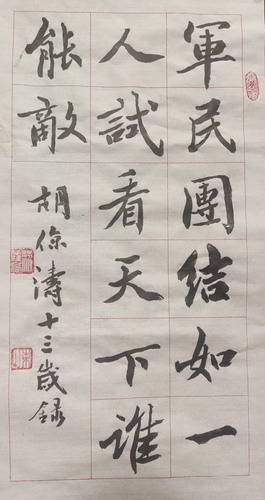 軍民團結如一
人試看天下誰
能敵
胡依濤十三歲錄